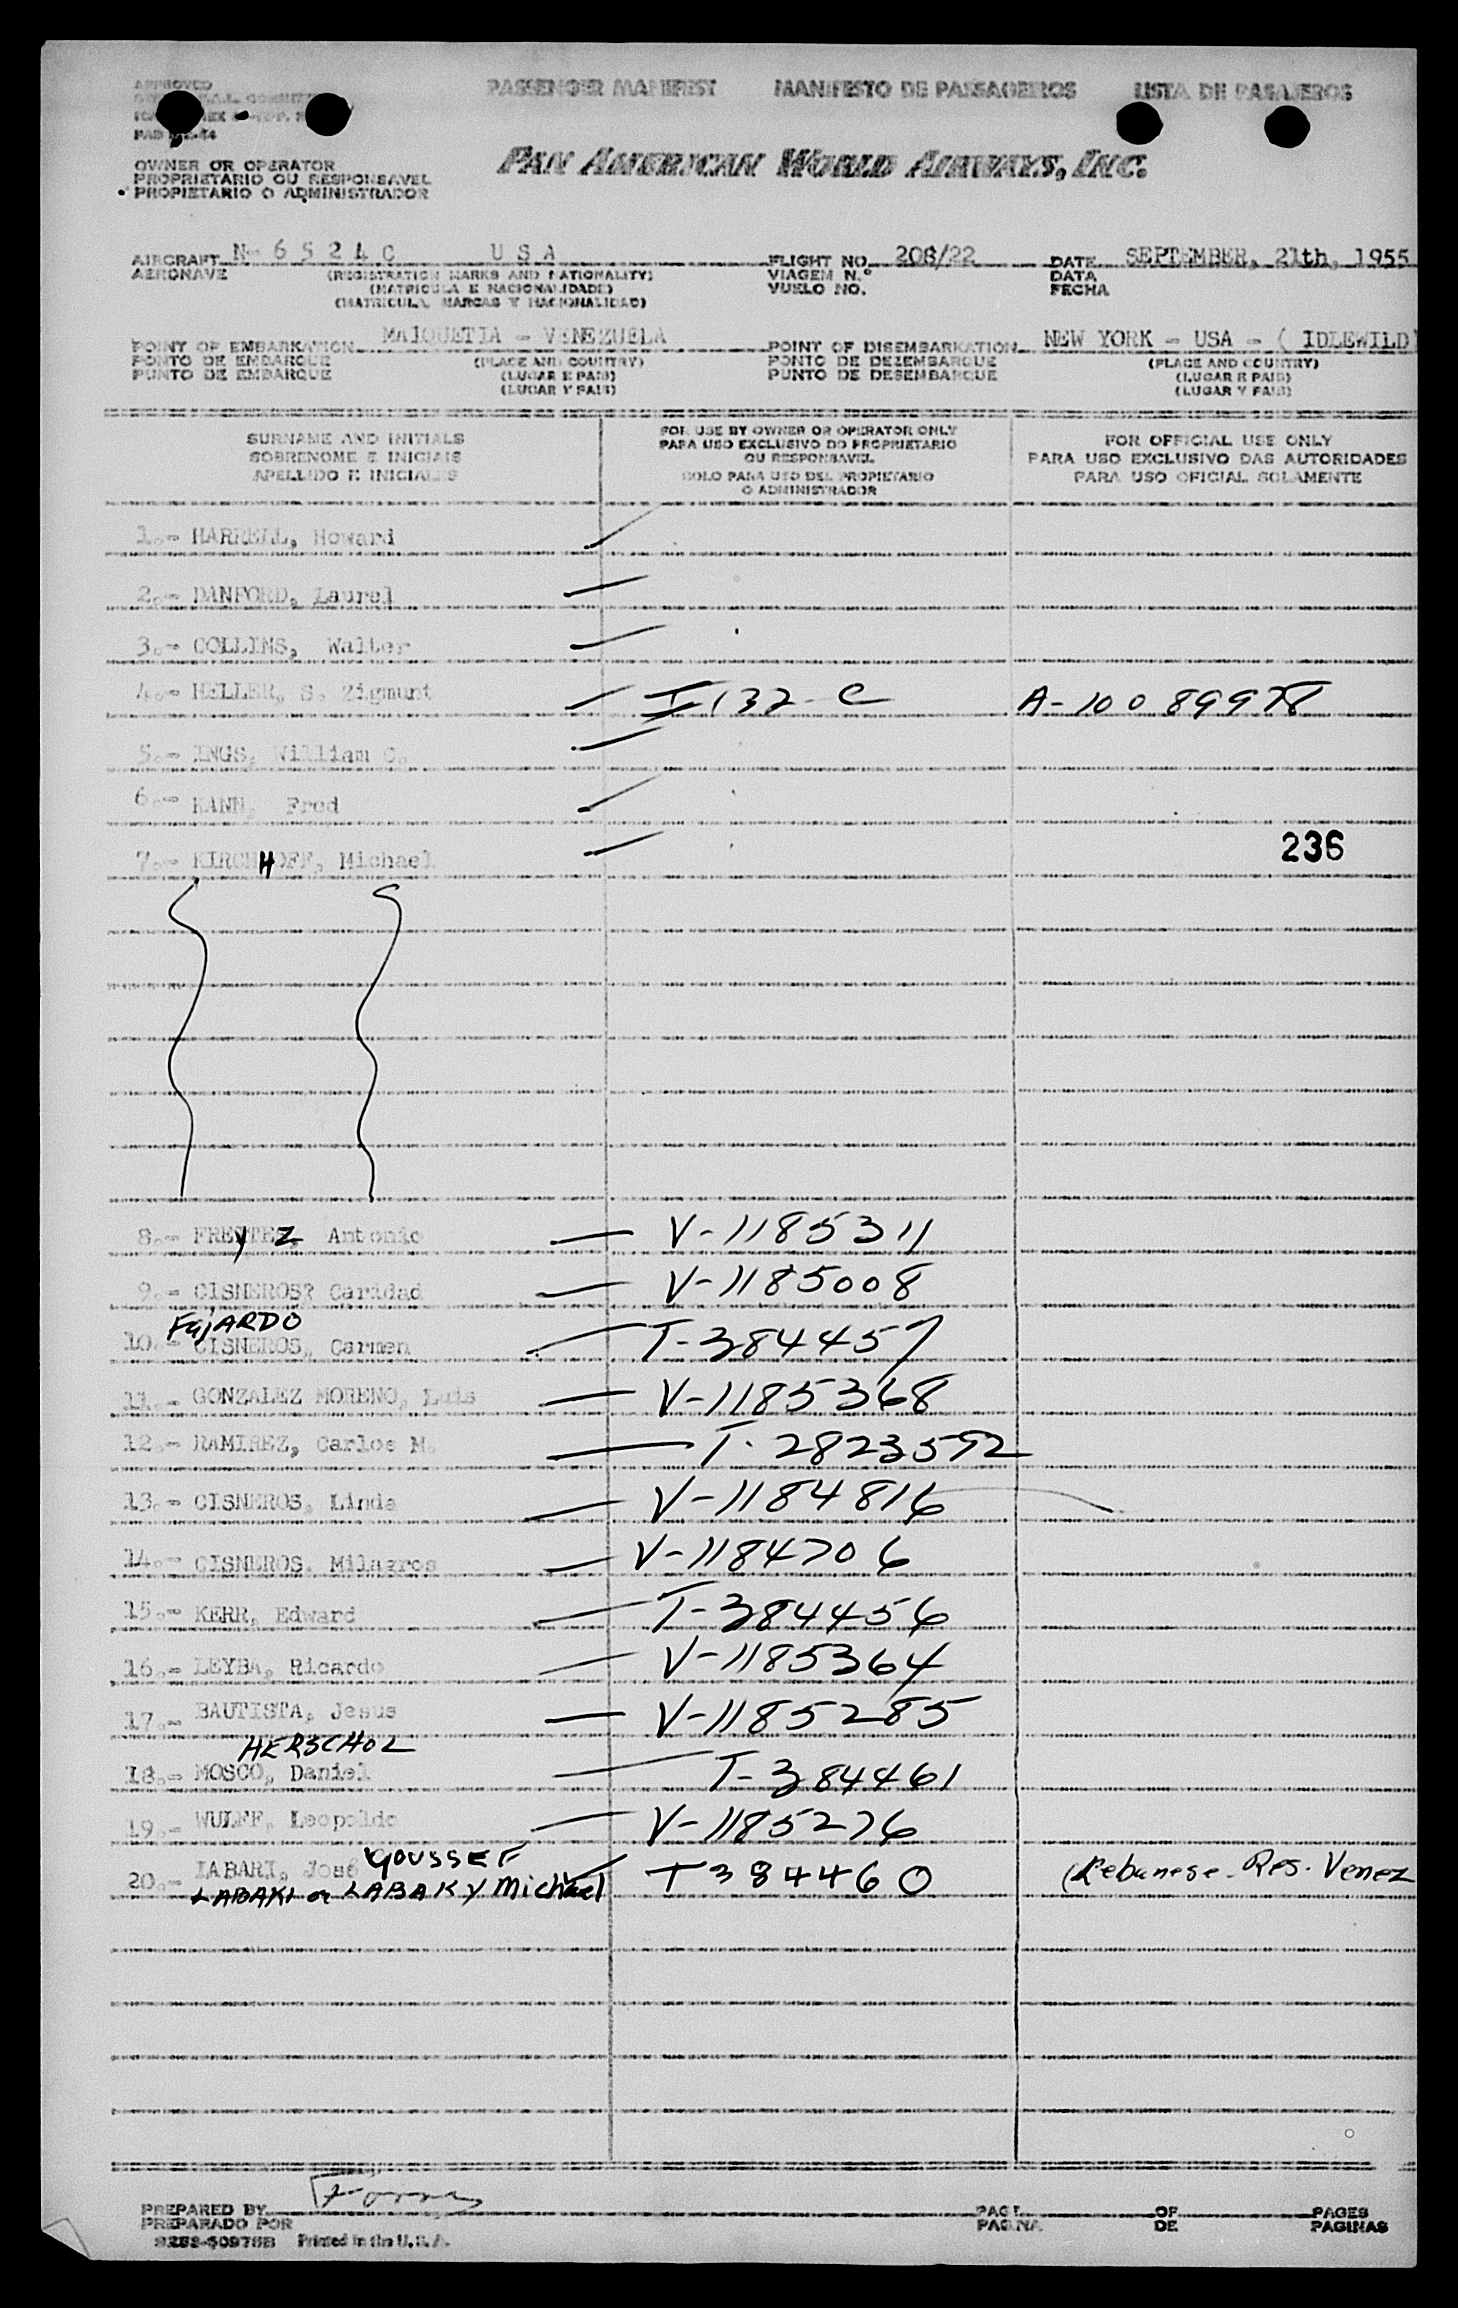 APPROVED
PASSENGER MANIFEST MANIFESTO DE PASSAGEIROS LISTA DE PASAJEROS
OWNER OR OPERATOR
PROPRIETARIO OU RESPONSAVEL
PROPIETARIO O ADMINISTRADOR
PAN AMERICAN WORLD AIRWAYS, INC.
AIRCRAFT N- 6 5 2 4 C U S A FLIGHT NO. 206/22 DATE SEPTEMBER, 21th, 1955
AERONAVE (REGISTRATION MARKS AND NATIONALITY) VIAGEM N.° DATA
(MATRICULA E NACIONALIDADE) VUELO NO. FECHA
(MATRICULA, MARCAS Y NACIONALIDAD)
POINT OF EMBARKATION MAIQUETIA - VENEZUELA POINT OF DISEMBARKATION NEW YORK - USA - ( IDLEWILD)
PONTO DE EMBARQUE (PLACE AND COUNTRY) PONTO DE DEZEMBARQUE (PLACE AND COUNTRY)
PUNTO DE EMBARQUE (LUGAR E PAIS) PUNTO DE DESEMBARQUE (LUGAR E PAIS)
(LUGAR Y PAIS) (LUGAR Y PAIS)
SURNAME AND INITIALS
SOBRENOME E INICIAIS
APELLIDO E INICIALES
FOR USE BY OWNER OR OPERATOR ONLY
PARA USO EXCLUSIVO DO PROPRIETARIO
OU RESPONSAVEL
SOLO PARA USO DEL PROPIETARIO
O ADMINISTRADOR
FOR OFFICIAL USE ONLY
PARA USO EXCLUSIVO DAS AUTORIDADES
PARA USO OFICIAL SOLAMENTE
1.- HARRELL, Howard
2.- DANFORD, Laurel
3.- COLLINS, Walter
4.- HELLER, S. Zigmunt I 132-C A-10089978
5.- INGS, William C.
6.- KANN, Fred
7.- KIRCHHOFF, Michael 236
8.- FREYTEZ, Antonio V-1185311
9.- CISNEROS? Caridad V-1185008
FAJARDO
10.- CISNEROS, Carmen T-384457
11.- GONZALEZ MORENO, Luis V-1185368
12.- RAMIREZ, Carlos M. T-2823592
13.- CISNEROS, Linda V-1184816
14.- CISNEROS. Milagros V-1184706
15.- KERR, Edward T-384456
16.- LEYBA, Ricardo V-1185364
17.- BAUTISTA, Jesus V-1185285
HERSCHOL
18.- MOSCO, Daniel T-384461
19.- WULFF, Leopoldo V-1185276
20.- LABARI, José YOUSSEF T384460 (Lebanese-Res. Venez
LABAKI or LABAKY Michael
PREPARED BY PAGE OF PAGES
PREPARADO POR PAGINA DE PAGINAS
Printed in the U.S.A.